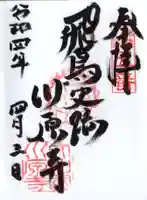 奉拝
飛鳥史跡
川原寺
令和四年 四月三日